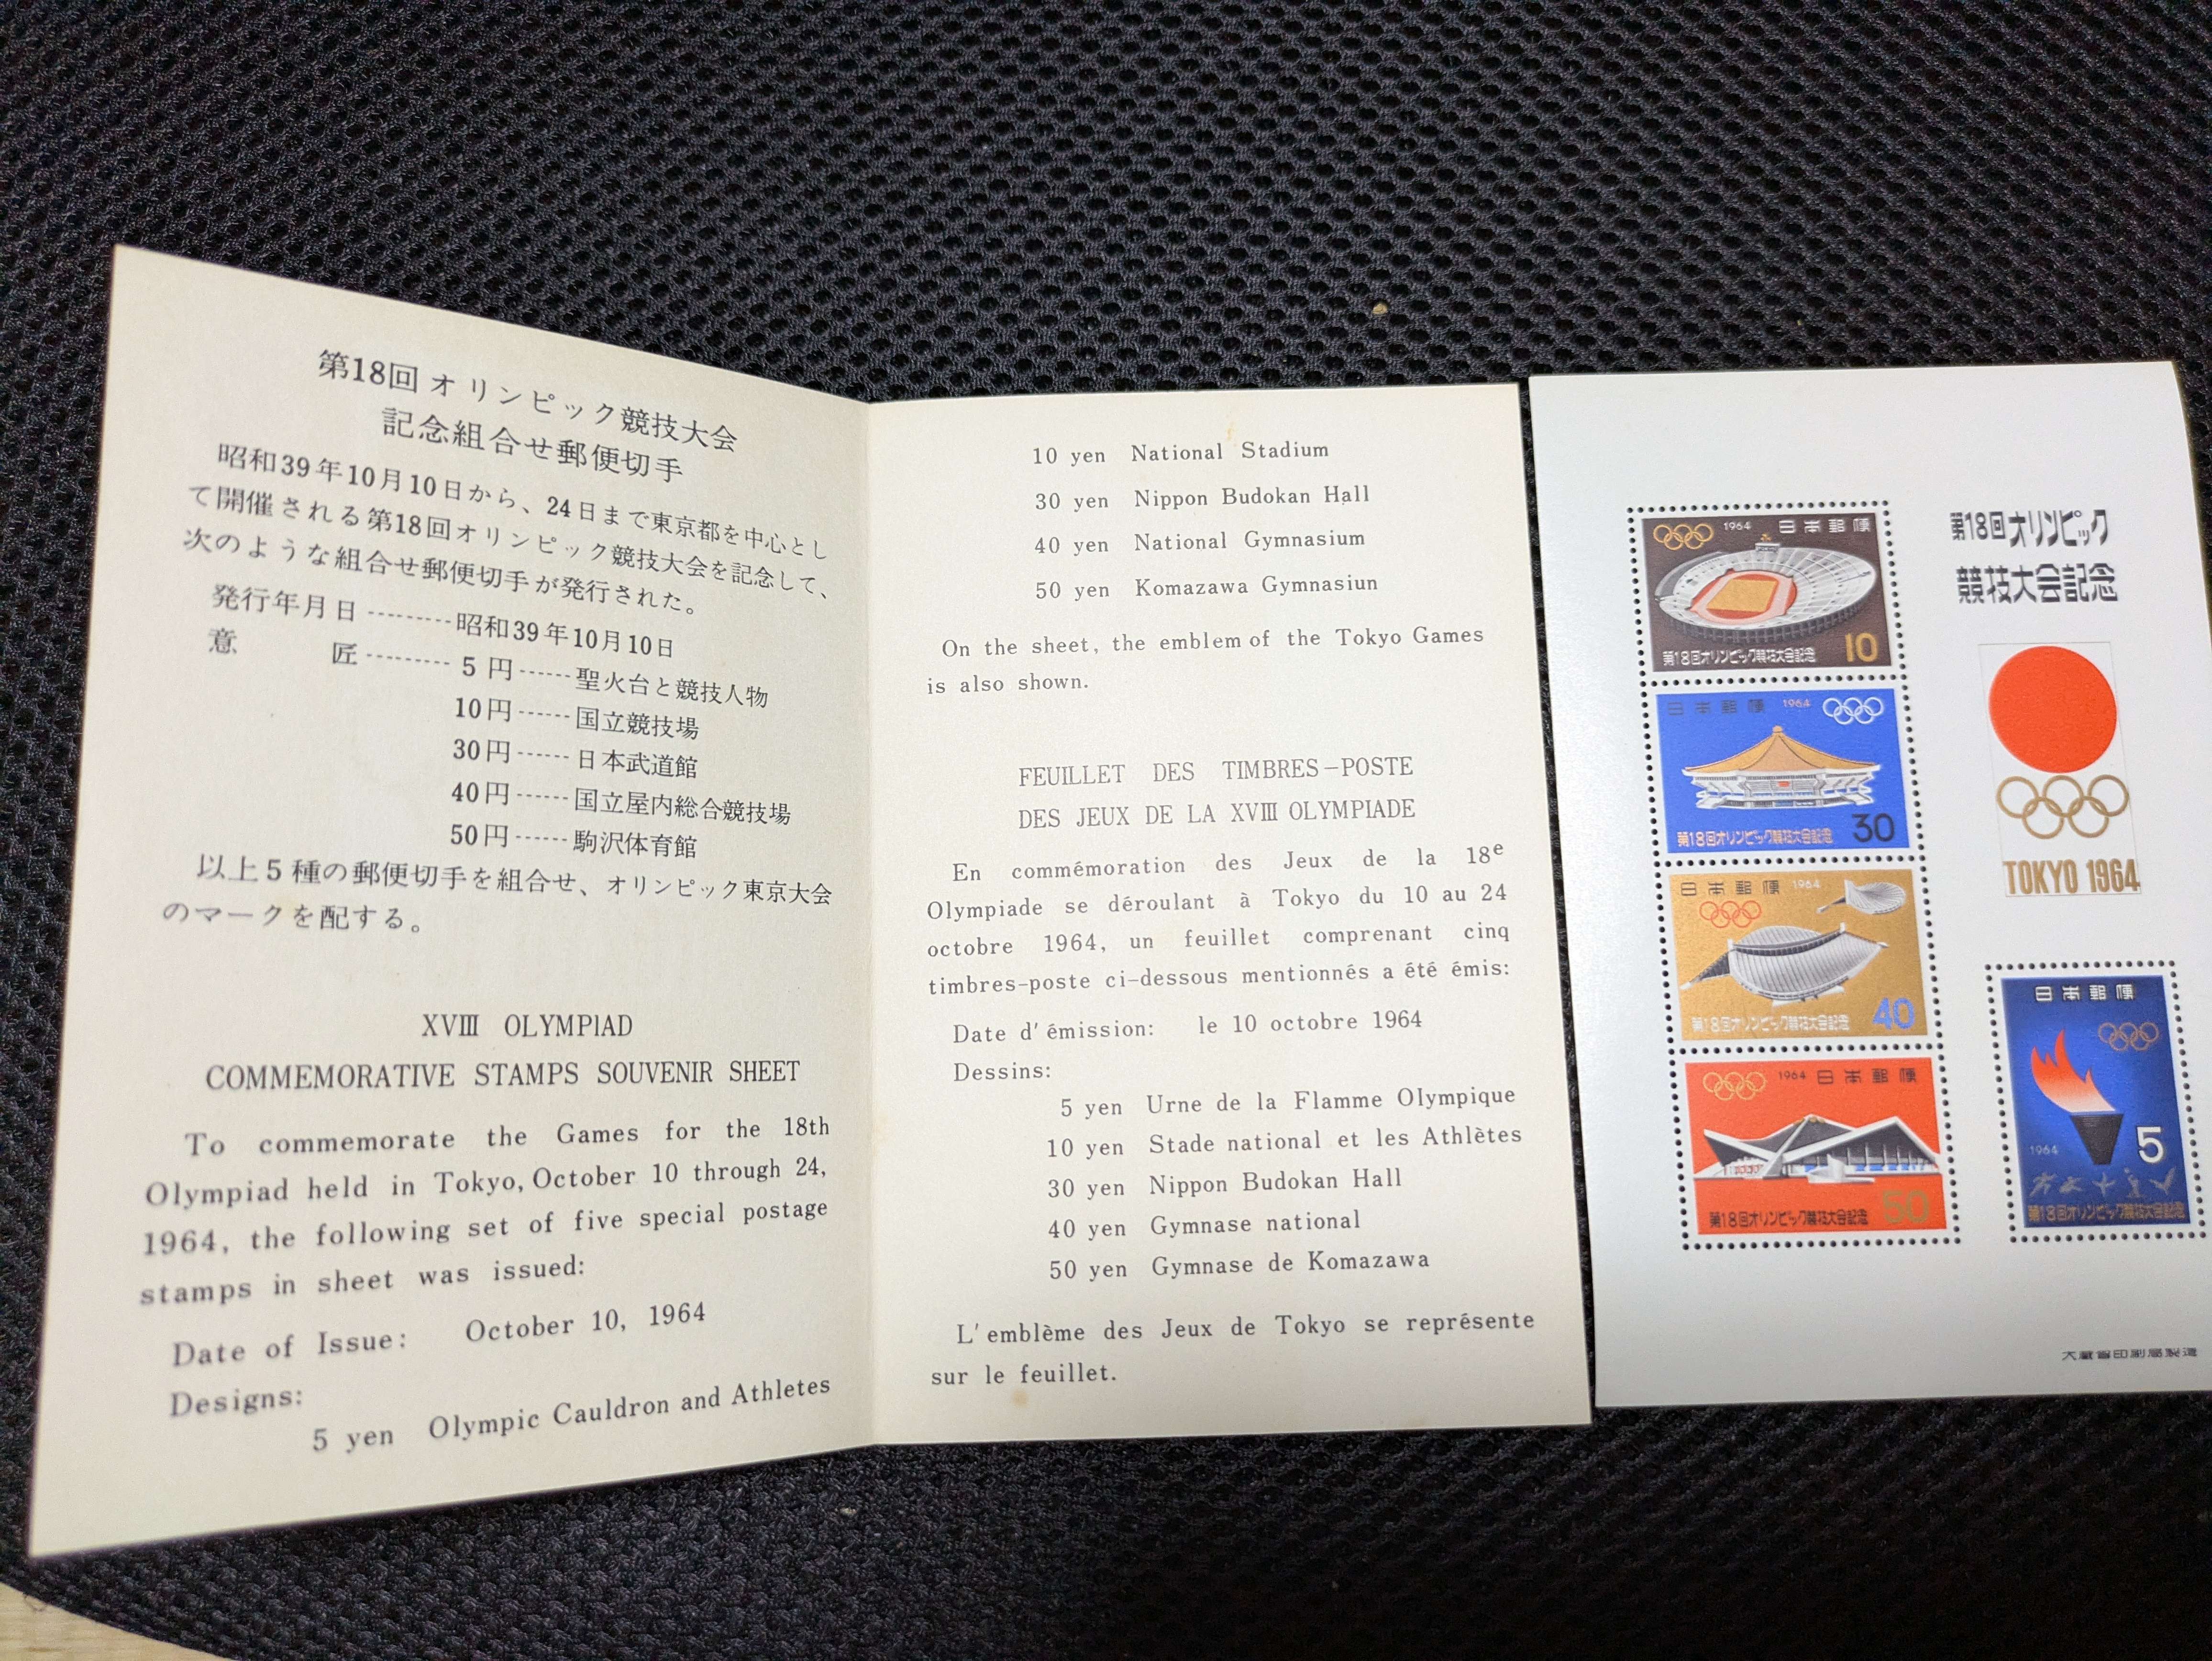 第18回 オリンピック競技大会
記念組合せ郵便切手
昭和39年10月10日から、24日まで東京都を中心とし
て開催される第18回オリンピック競技大会を記念して、
次のような組合せ郵便切手が発行された。
発行年月日---------昭和39年10月10日
意匠--------- 5円------聖火台と競技人物
10円------国立競技場
30円------日本武道館
40円------国立屋内総合競技場
50円------駒沢体育館
以上5種の郵便切手を組合せ、オリンピック東京大会
のマークを配する。
XVIII OLYMPIAD
COMMEMORATIVE STAMPS SOUVENIR SHEET
To commemorate the Games for the 18th
Olympiad held in Tokyo, October 10 through 24,
1964, the following set of five special postage
stamps in sheet was issued:
Date of Issue: October 10, 1964
Designs:
5 yen Olympic Cauldron and Athletes
10 yen National Stadium
30 yen Nippon Budokan Hall
40 yen National Gymnasium
50 yen Komazawa Gymnasiun
On the sheet, the emblem of the Tokyo Games
is also shown.
FEUILLET DES TIMBRES-POSTE
DES JEUX DE LA XVIII OLYMPIADE
En commémoration des Jeux de la 18e
Olympiade se déroulant à Tokyo du 10 au 24
octobre 1964, un feuillet comprenant cinq
timbres-poste ci-dessous mentionnés a été émis:
Date d'émission: le 10 octobre 1964
Dessins:
5 yen Urne de la Flamme Olympique
10 yen Stade national et les Athlètes
30 yen Nippon Budokan Hall
40 yen Gymnase national
50 yen Gymnase de Komazawa
L'emblème des Jeux de Tokyo se représente
sur le feuillet.
1964 日本郵便
第18回オリンピック競技大会記念 10
日本郵便 1964
第18回オリンピック競技大会記念 30
日本郵便 1964
第18回オリンピック競技大会記念 40
1964 日本郵便
第18回オリンピック競技大会記念 50
第18回オリンピック
競技大会記念
TOKYO 1964
日本郵便
1964 5
第18回オリンピック競技大会記念
大蔵省印刷局製造